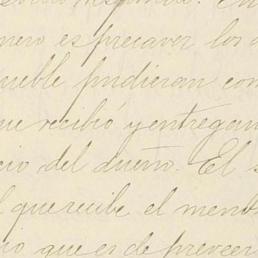 nero es precaver los
mueble pudieran con
que recibió y entregan
cio del dueño. El
l que recibe el men
io que es de preveer